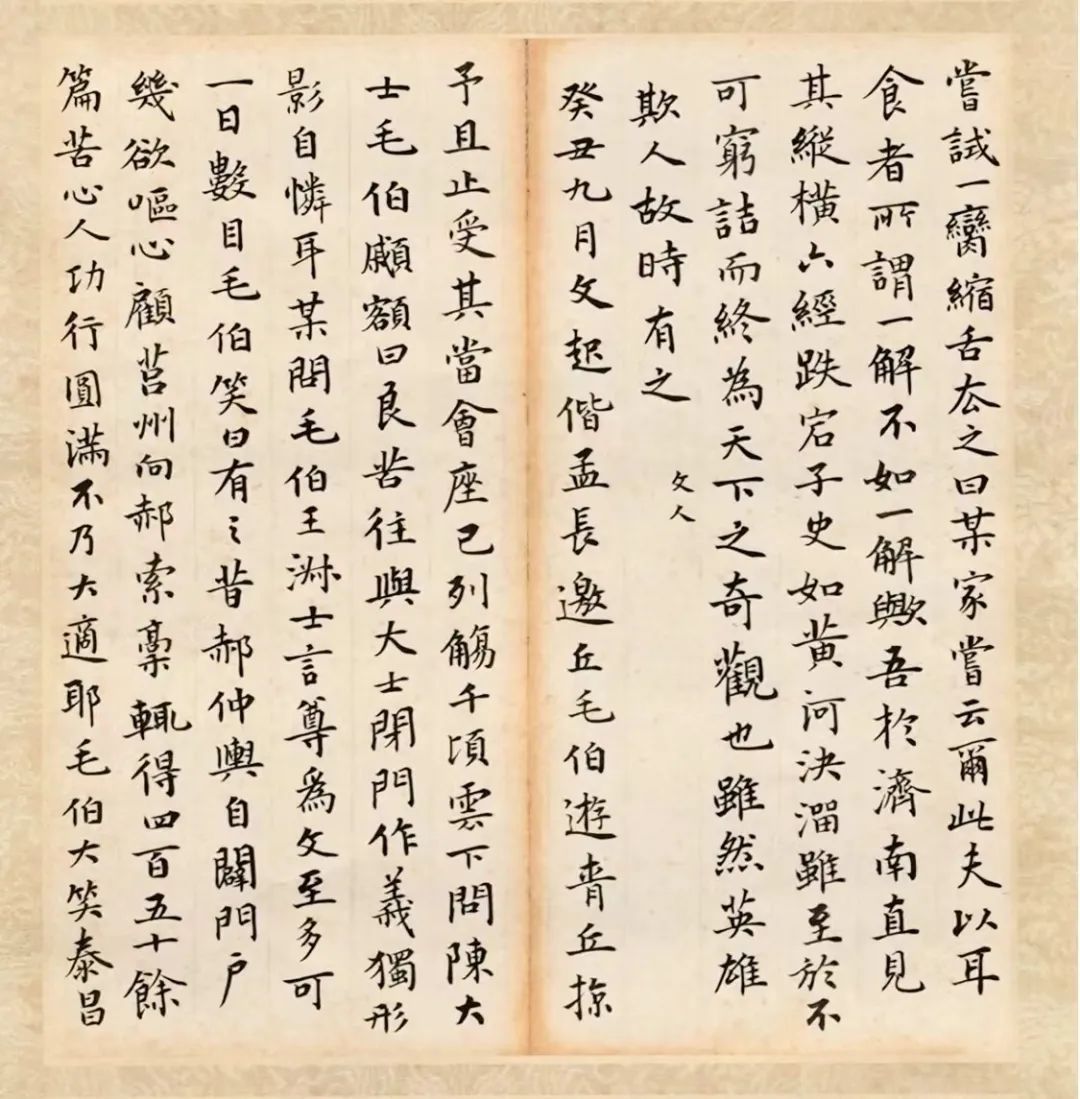 嘗試一臠縮舌去之曰某家嘗云爾此夫以耳
食者所謂一解不如一解歟吾於濟南直見
其縱橫六經跌宕子史如黃河決溜雖至於不
可窮詰而終為天下之奇觀也雖然英雄
欺人故時有之
文人
癸丑九月文起偕孟長邀丘毛伯遊青丘掠
予且止受其當會座已列觴千頃雲下問陳大
士毛伯顣額曰良苦往與大士閉門作義獨形
影自憐耳某問毛伯王淋士言尊為文至多可
一日數目毛伯笑曰有之昔郝仲輿自闢門戶
幾欲嘔心顧莒州向郝索稾輒得四百五十餘
篇苦心人功行圓滿不乃大適耶毛伯大笑泰昌